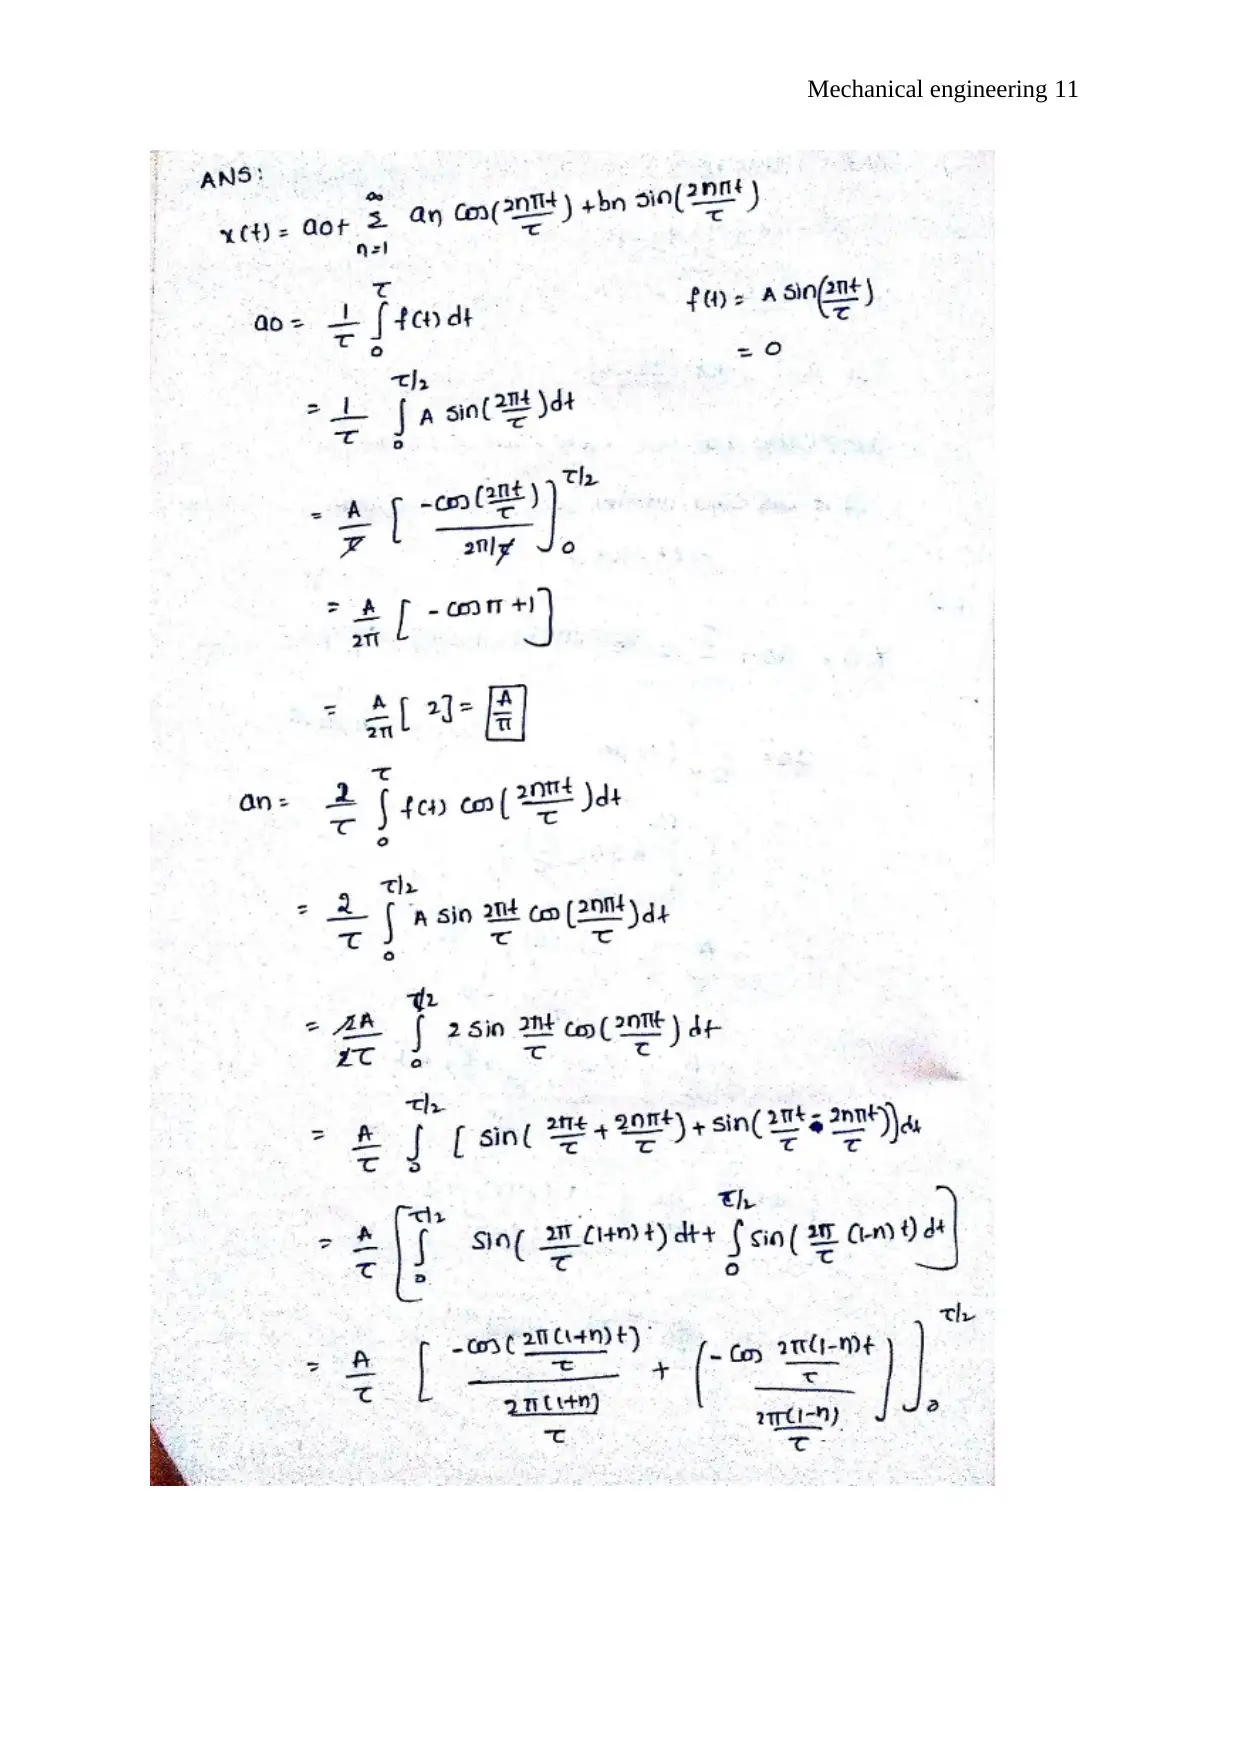 Mechanical engineering 11
ANS:
x(t) = a0 + ∞ Σ n=1 an cos(2nπt/τ) + bn sin(2nπt/τ)
a0 = 1/τ ∫₀^τ f(t) dt
f(t) = A sin(2πt/τ)
= 0
= 1/τ ∫₀^τ/2 A sin(2πt/τ)dt
= A/τ [ -cos(2πt/τ) / 2π/τ ]₀^τ/2
= A/2π [ - cos π + 1 ]
= A/2π [ 2 ] = A/π
an = 2/τ ∫₀^τ f(t) cos(2nπt/τ)dt
= 2/τ ∫₀^τ/2 A sin 2πt/τ cos(2nπt/τ)dt
= 2A/2τ ∫₀^τ/2 2 sin 2πt/τ cos(2nπt/τ) dt
= A/τ ∫₀^τ/2 [ sin( 2πt/τ + 2nπt/τ) + sin( 2πt/τ - 2nπt/τ)]dt
= A/τ [ ∫₀^τ/2 sin( 2π/τ (1+n) t) dt + ∫₀^τ/2 sin( 2π/τ (1-n) t) dt ]
= A/τ [ -cos( 2π(1+n)t/τ ) / 2π(1+n)/τ + ( - cos 2π(1-n)t/τ / 2π(1-n)/τ ) ]₀^τ/2